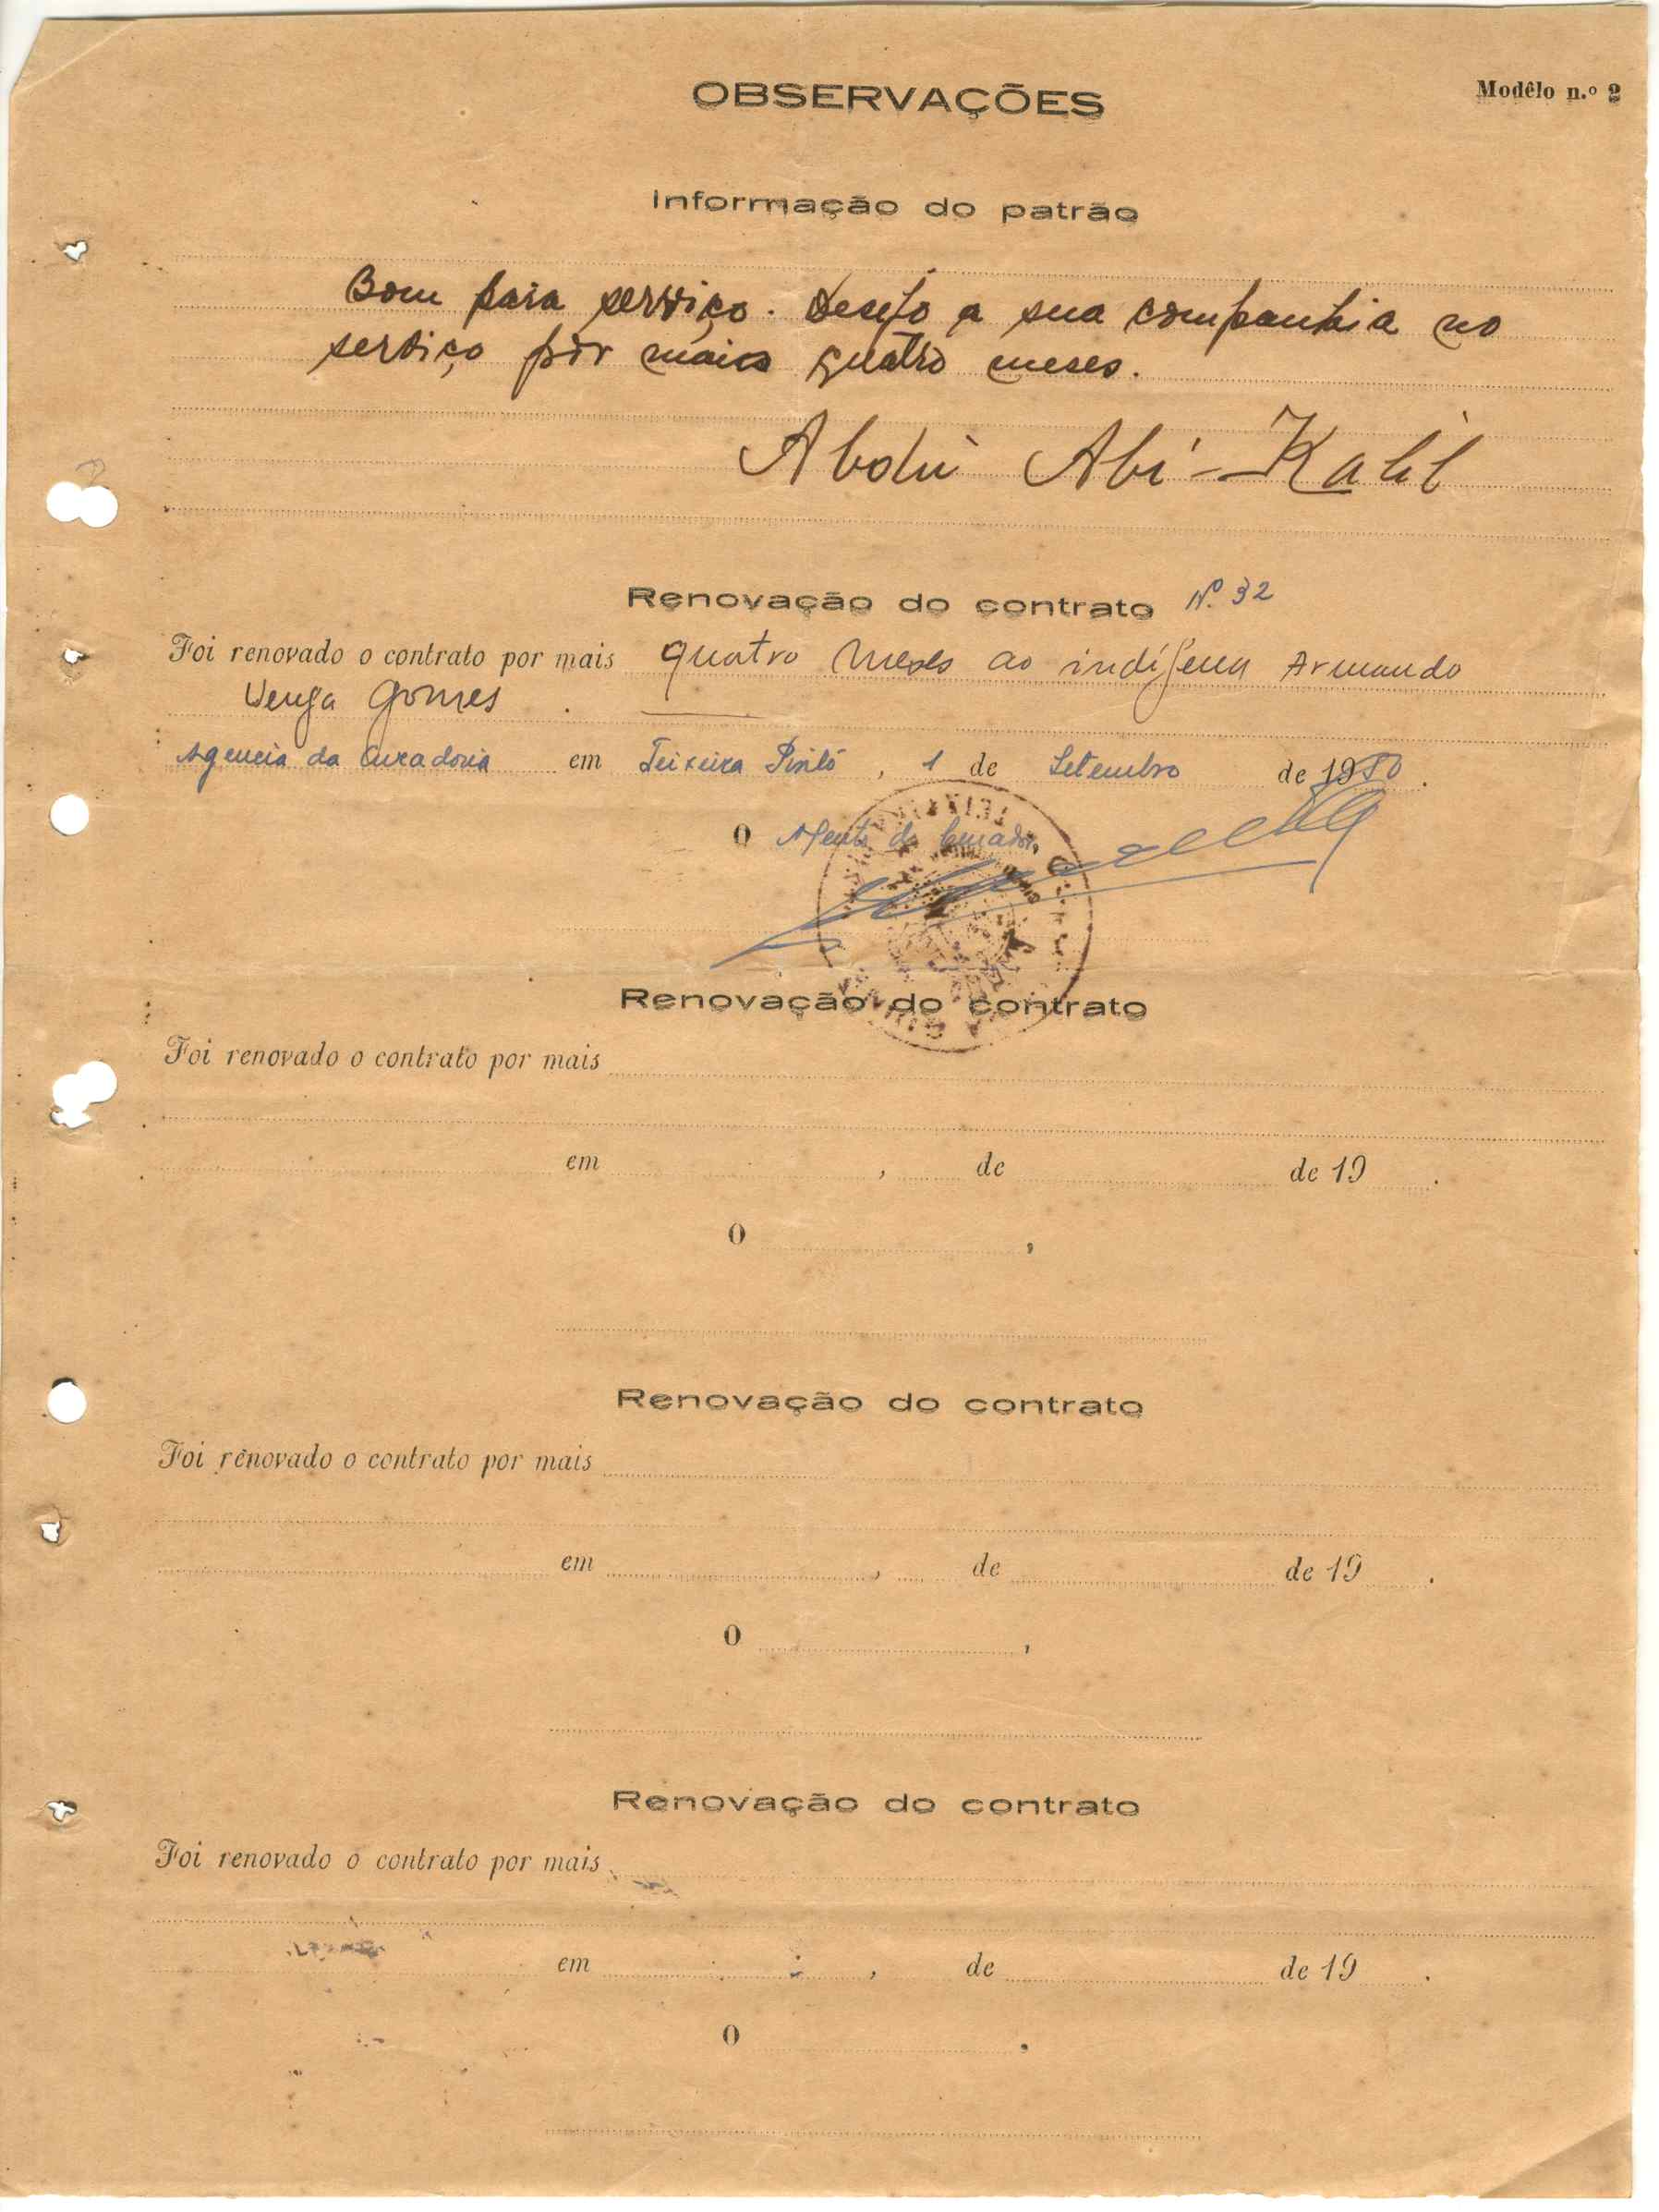 OBSERVAÇÕES
Modêlo n.º 2
Informação do patrão
Bom para serviço. Desejo a sua companhia no
serviço por mais quatro meses.
Abdú Abi-Kalil
Renovação do contrato Nº 32
Foi renovado o contrato por mais quatro meses ao indígena Armando
Gomes.
Agencia da Curadoria em Teixeira Pinto, 1 de Setembro de 1950.
O Agente do Curador,
Renovação do contrato
Foi renovado o contrato por mais
em , de de 19 .
O ,
Renovação do contrato
Foi renovado o contrato por mais
em , de de 19 .
O ,
Renovação do contrato
Foi renovado o contrato por mais
em , de de 19 .
O ,